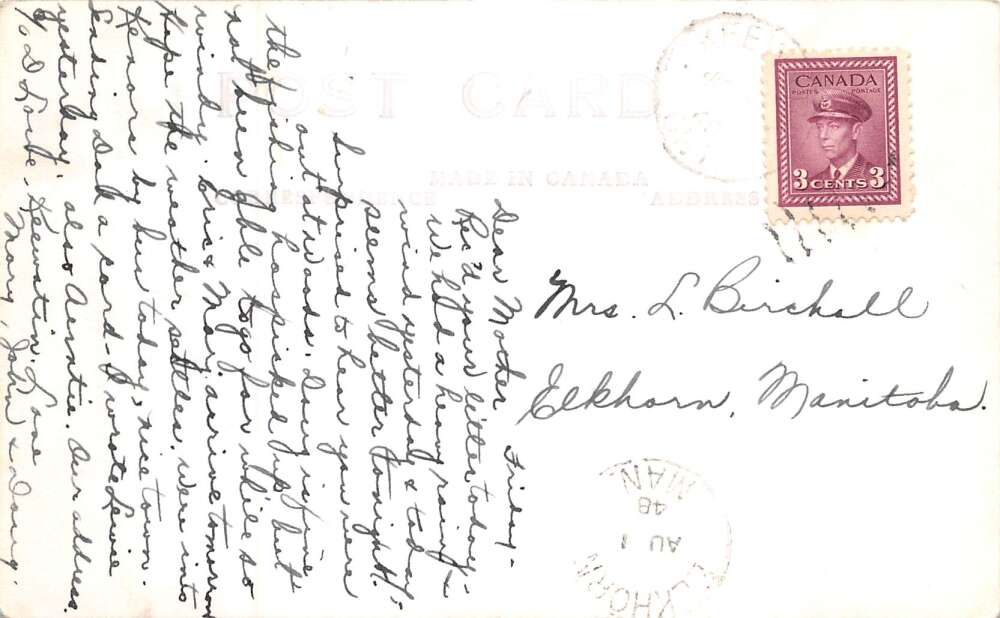 POST CARD
MADE IN CANADA
CORRESPONDENCE
ADDRESS
CANADA
POSTES POSTAGE
3 CENTS 3
Friday -
Dear Mother
Rec'd your letter today -
We had a heavy rain &
wind yesterday & today;
seems better tonight.
Surprised to hear you were
out at Woods. Doug is fine
the fishing has picked up but
not been able to go far while so
windy. Eric & Mary arrive tomorrow
Hope the weather settles. were into
Kenora by bus today, nice town.
Sending Dad a card - I wrote
yesterday, also Auntie. Our address.
℅ D Keewatin. Love
Mary, John, & Doug.
Mrs. L. Birchall
Elkhorn, Manitoba.
ELKHORN
AU 1
48
MAN.